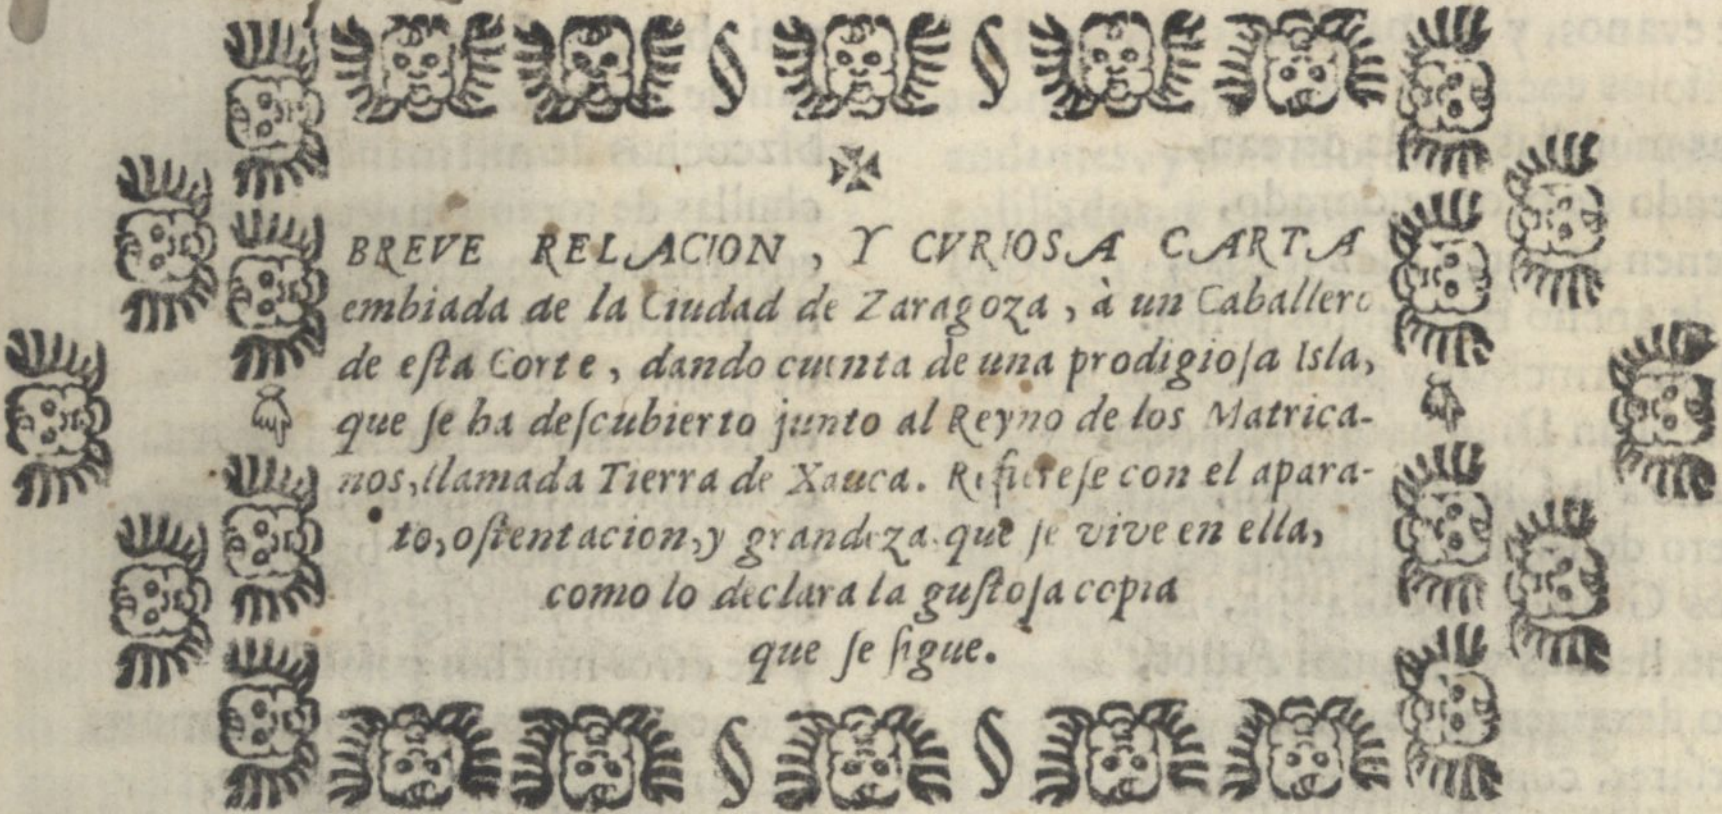 BREVE RELACION, Y CVRIOSA CARTA
embiada de la Ciudad de Zaragoza, à un Caballero
de eſta Corte, dando cuenta de una prodigioſa Isla,
que ſe ha deſcubierto junto al Reyno de los Matrica-
nos, llamada Tierra de Xauca. Refiereſe con el apara-
to, oſtentacion, y grandeza que ſe vive en ella,
como lo declara la guſtoſa copia
que ſe ſigue.